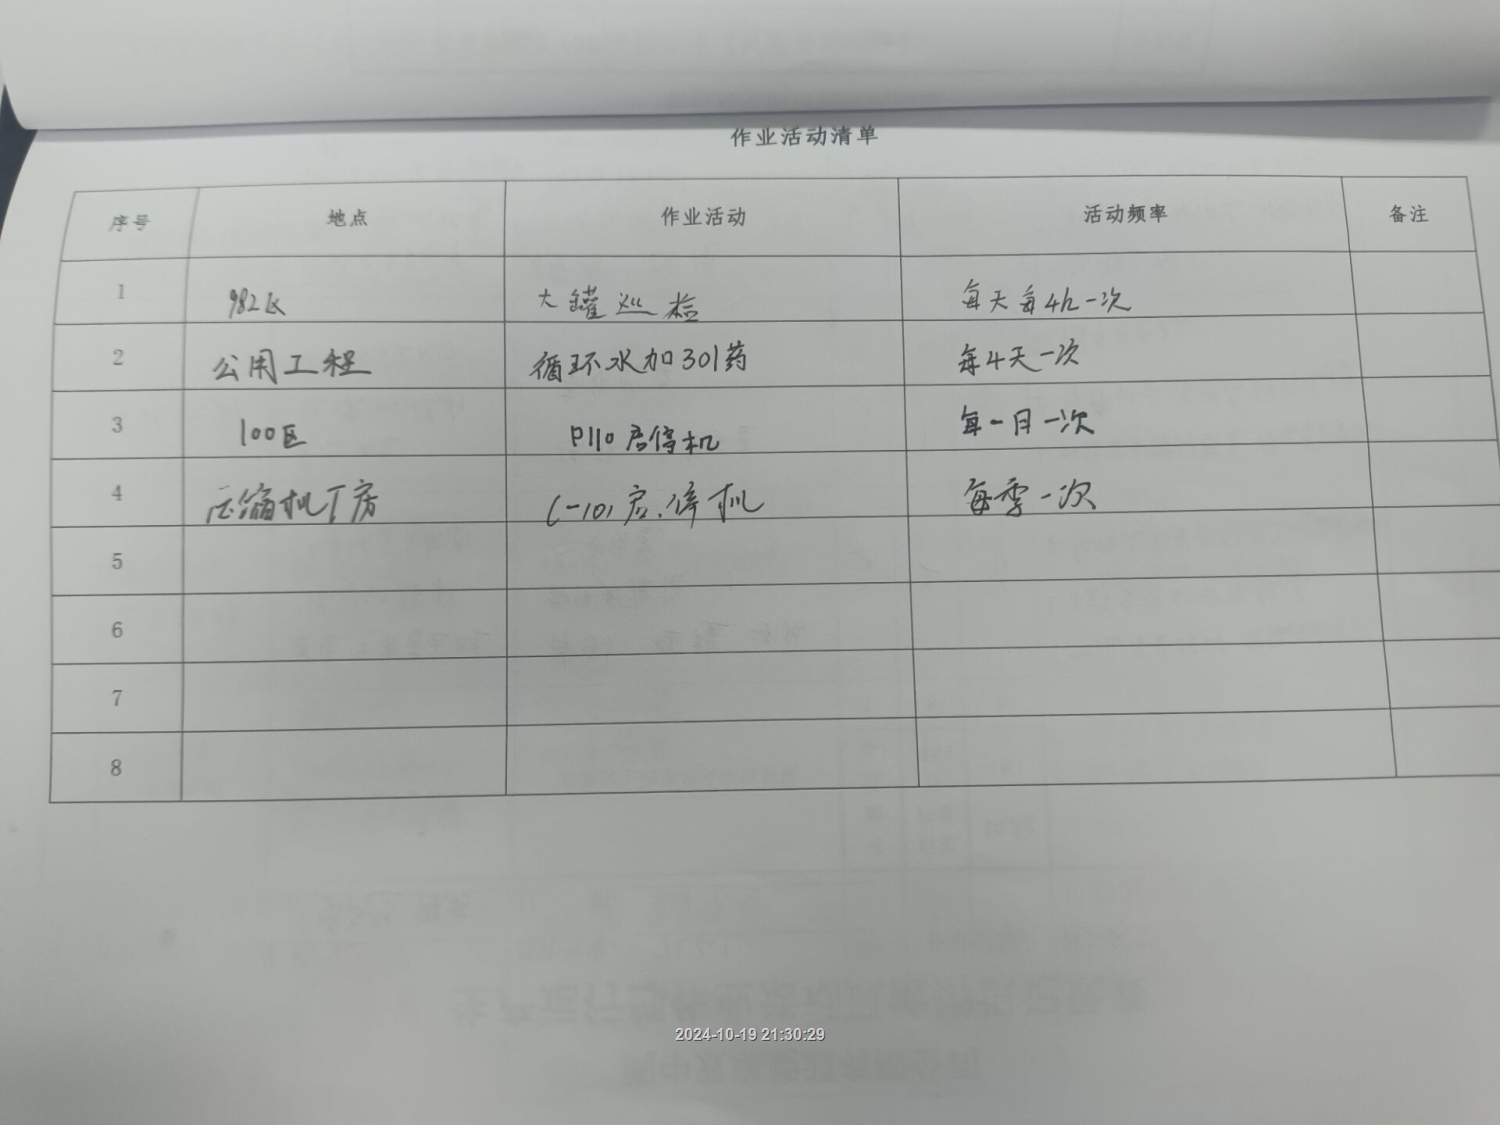 作业活动清单
序号 地点 作业活动 活动频率 备注
1 982区 大罐巡检 每天每4h一次
2 公用工程 循环水加301药 每4天一次
3 100区 P110启停机 每一月一次
4 压缩机厂房 C-101启.停机 每季一次
5
6
7
8
2024-10-19 21:30:29